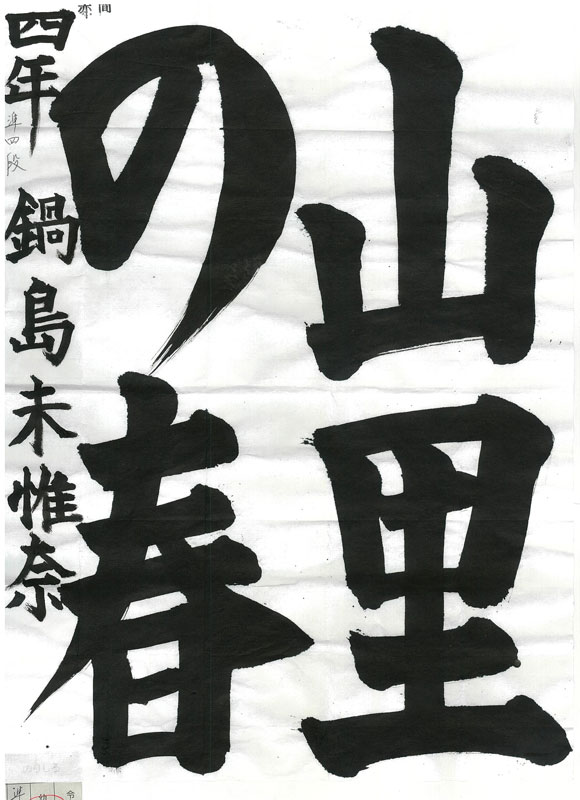 山里
の春
四年 鍋島未惟奈
準四段
準